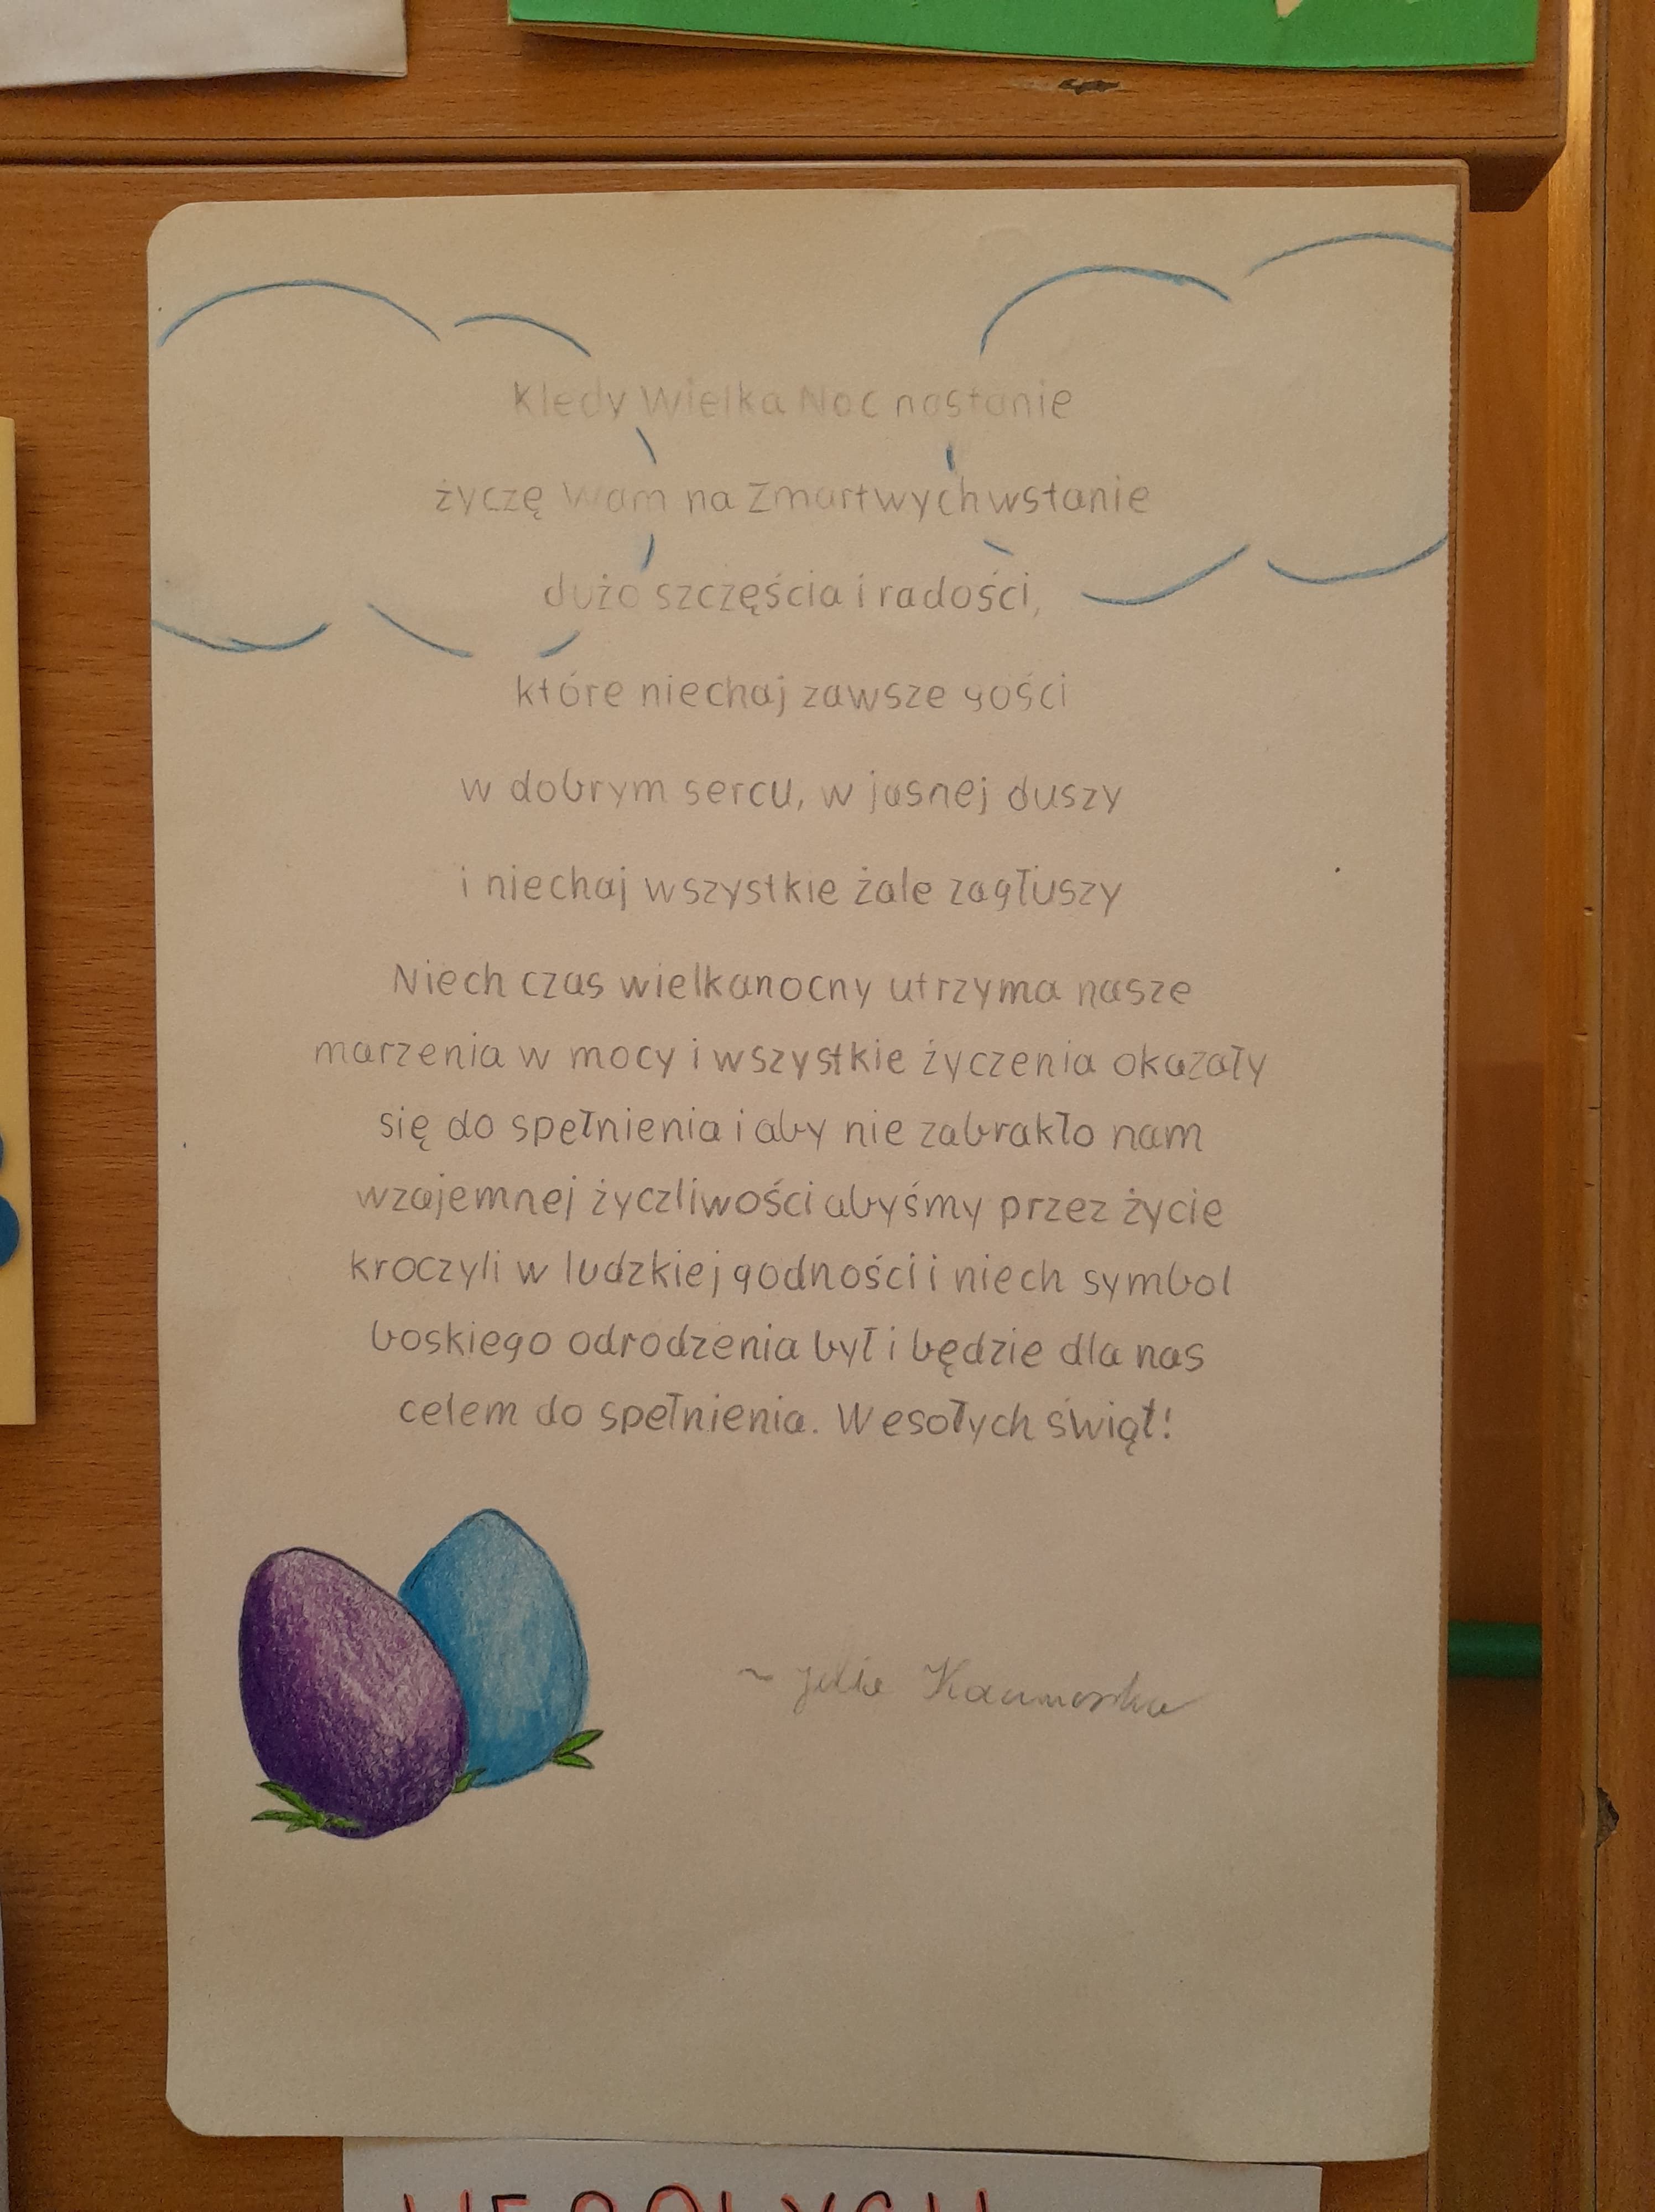 Kiedy Wielka Noc nastanie
życzę Wam na Zmartwychwstanie
dużo szczęścia i radości,
które niechaj zawsze gości
w dobrym sercu, w jasnej duszy
i niechaj wszystkie żale zagłuszy
Niech czas wielkanocny utrzyma nasze
marzenia w mocy i wszystkie życzenia okazały
się do spełnienia i aby nie zabrakło nam
wzajemnej życzliwości abyśmy przez życie
kroczyli w ludzkiej godności i niech symbol
boskiego odrodzenia był i będzie dla nas
celem do spełnienia. Wesołych świąt!
WESOŁYCH